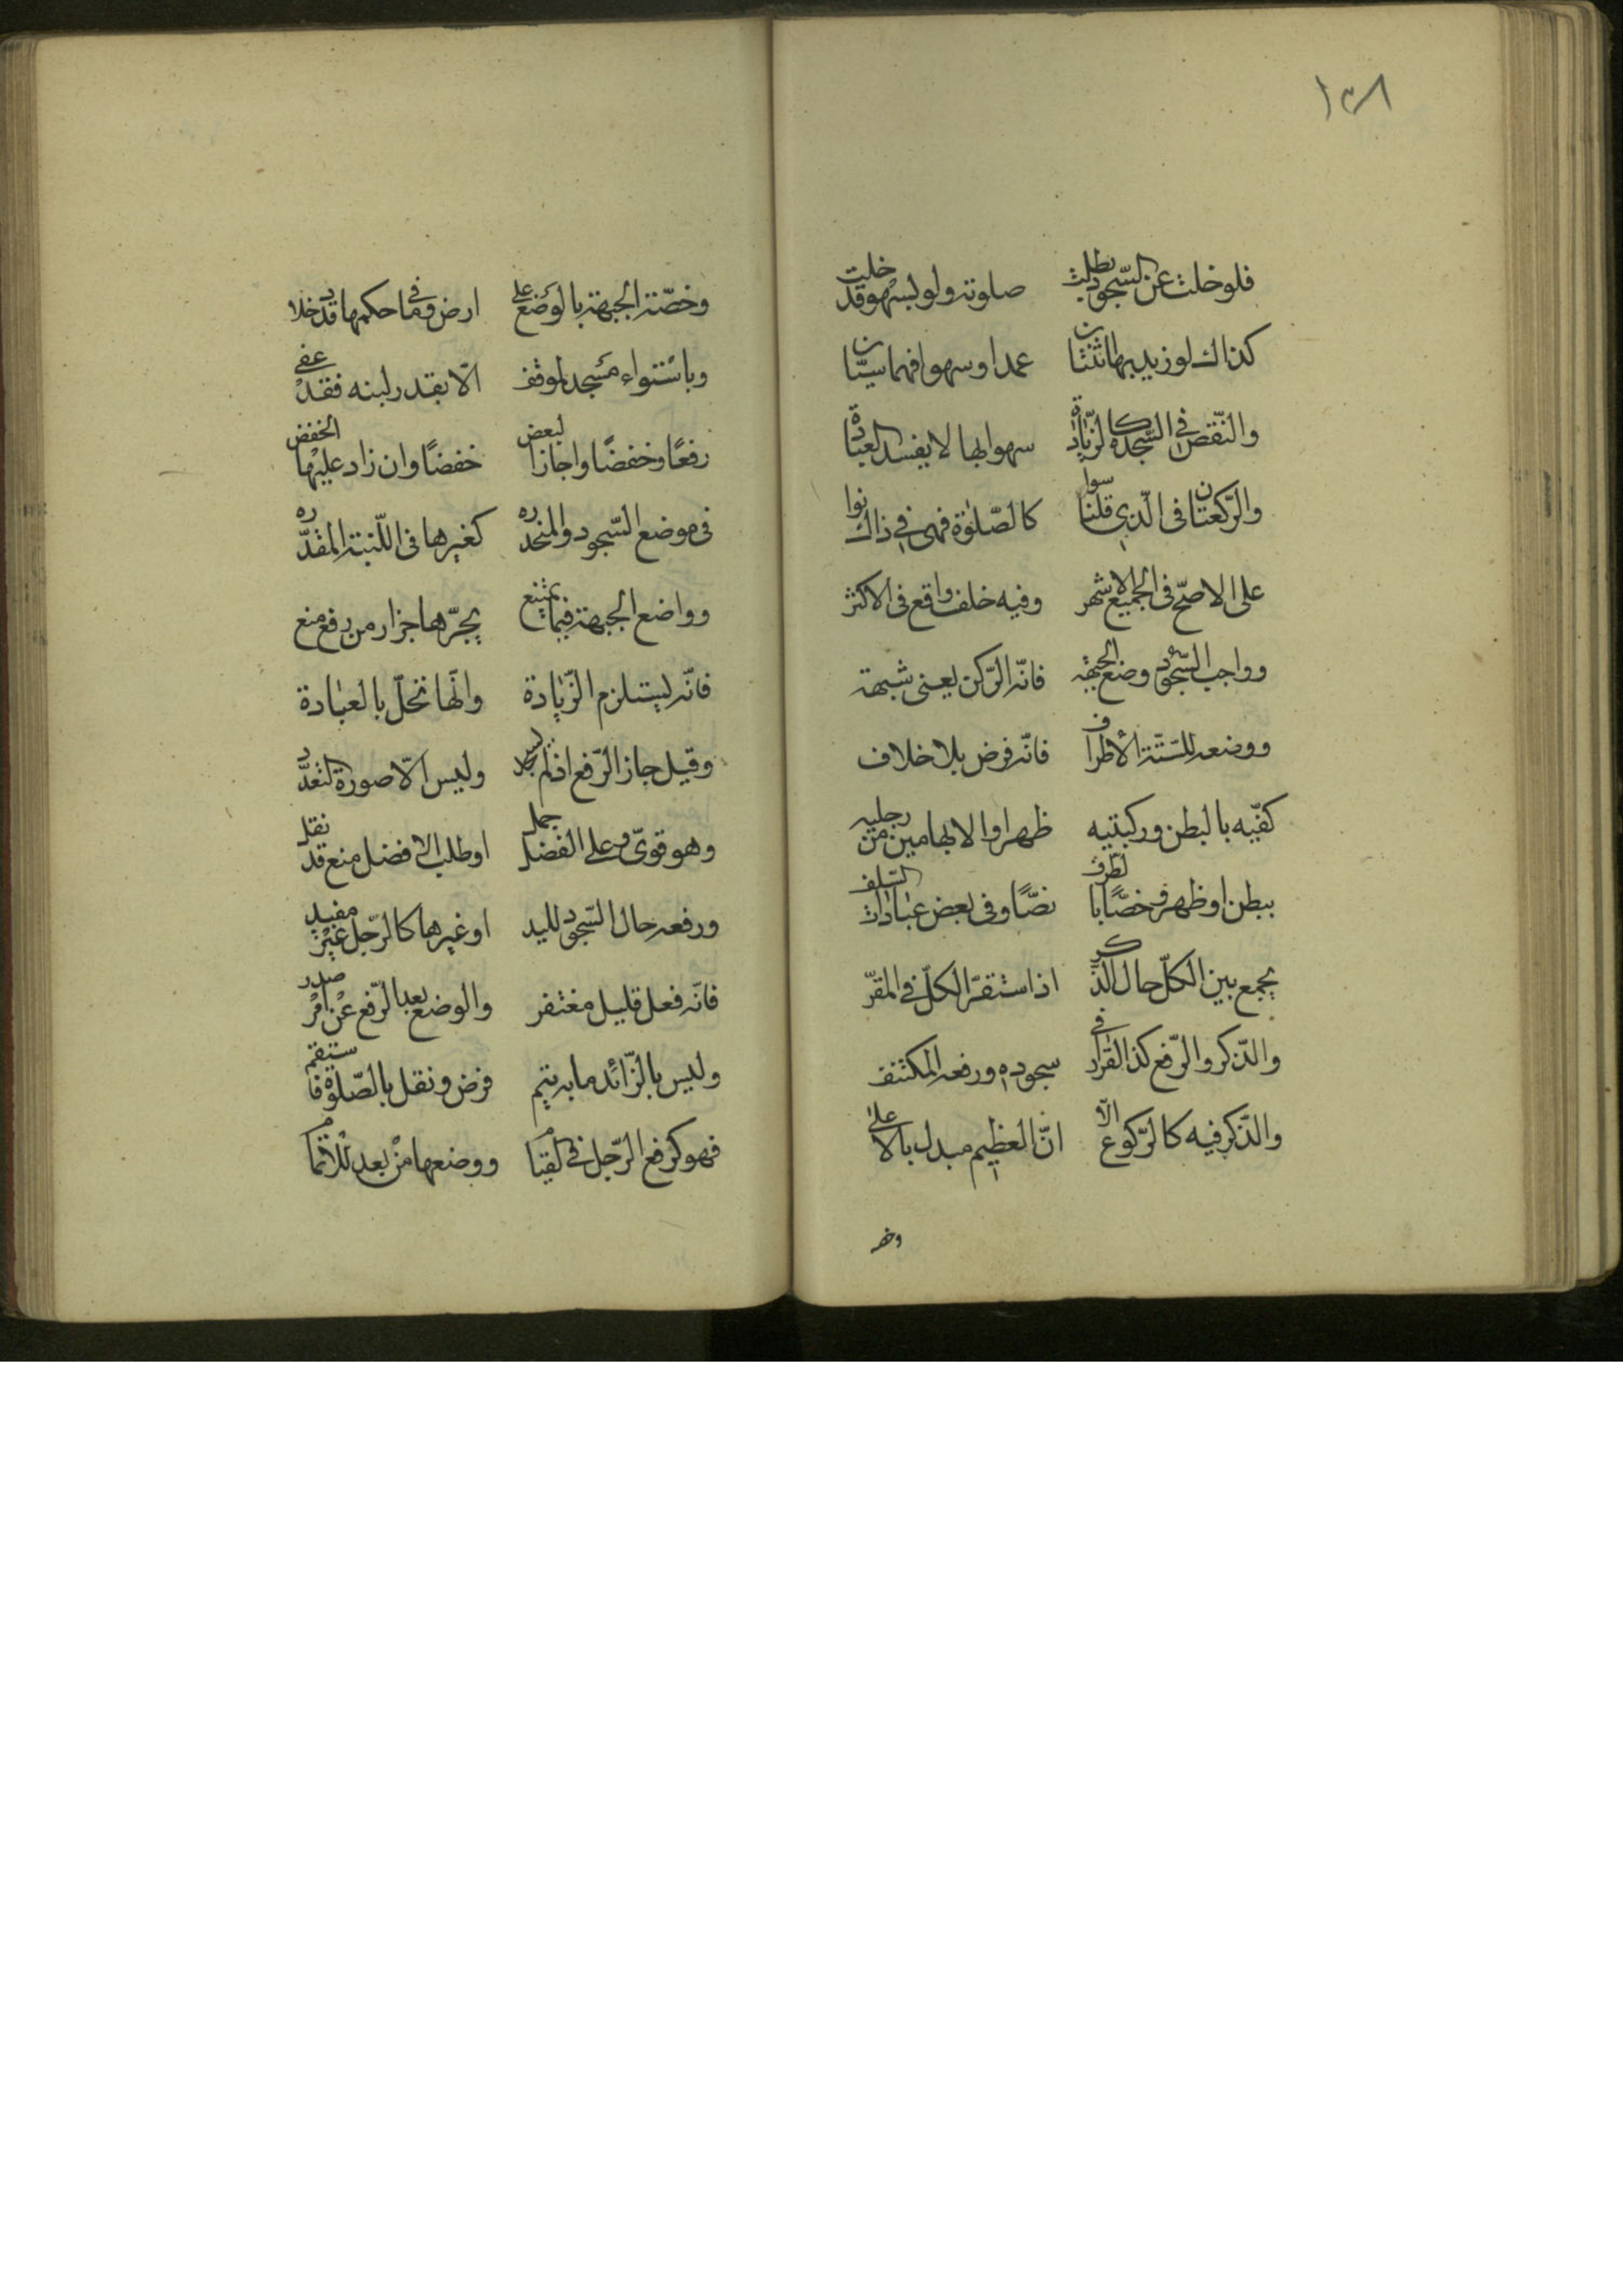 ١٣٨
فلو خلت عن السّجود بطلت صلوته ولو لسهو قد خلت
كذاك لو زيد بها ثنتان عمدا وسهوا فهما سيّان
والنّقص في السّجدة كالزّيادة سهوا بها لا يفسد العبادة
والرّكعتان في الّذي قلنا سوا كالصّلوة فهي في ذاك
على الاصحّ في الجميع الاشهر وفيه خلف واقع في الاكثر
وواجب السّجود وضع الجبهة فانّه الرّكن بغير شبهة
ووضعه للستّة الأطراف فانّه فرض بلا خلاف
كفّيه بالبطن وركبتيه ظهرا والابهامين من رجليه
ببطن او ظهر فخصّا بالطرف نصًّا وفي بعض عبارات السّلف
يجمع بين الكلّ حال الذّكر اذ استقرّ الكلّ في المقرّ
والذّكر والرّفع كذا القرار في سجوده ورفعه المكتنف
والذّكر فيه كالرّكوع الّا انّ العظيم مبدل بالاعلى
وخصّه
وخصّة الجبهة بالوضع على ارض وما في حكمها قد دخلا
وباستواء مسجد لموقف الّا بقدر لبنه فقد عفي
رفعًا وخفضًا واجاز البعض خفضًا وان زاد عليها الخفض
في موضع السّجود والمنحدره كغيرها في اللّبنة المقدّره
وواضع الجبهة فيما يمتنع يجرّها جزار من رفع منع
فانّه يستلزم الزّيادة وانّها تخلّ بالعبادة
وقيل جاز الرّفع اذ لم يسجد وليس الّا صورة التعدّد
وهو قويّ وعلى الفضل حمل او طلب الافضل منع قد نقل
ورفعه حال السّجود لليد او غيرها كالرّجل غير مفسد
فانّه فعل قليل مغتفر والوضع بعد الرّفع عن امر صدر
وليس بالزّائد ما به يتم فرض ونفل بالصّلوة فاستقم
فهو كرفع الرّجل في القيام ووضعها من بعد للاتمام